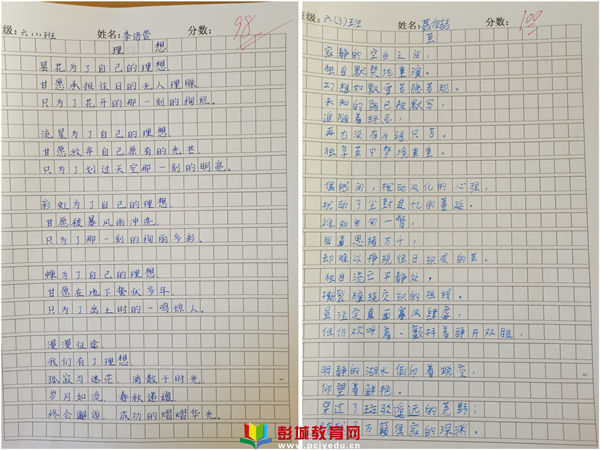 班级：六（1）班 姓名：李语萱 分数：98
理想
昙花为了自己的理想，
甘愿承担往日的无人理睬，
只为了花开的那一刻的绚烂。
流星为了自己的理想，
甘愿放弃自己原有的光芒，
只为了划过天空那一刻的明亮。
彩虹为了自己的理想，
甘愿被暴风雨冲洗，
只为了那一刻的绚丽多彩。
蝉为了自己的理想，
甘愿在地下蛰伏多年，
只为了出土时的一鸣惊人。
漫漫征途，
我们有了理想，
孤寂与迷茫，消散于时光。
岁月如流，春秋递嬗，
终会邂逅，成功的熠熠华光。
级：六（3）班 姓名： 分数：100
茧
寂静的空白之间，
独自默契地重演。
幻想如飘雪若隐若现，
未知的路已被默写，
追随着终点，
再也没有片语只言。
独享茧中梦境重重。
偶然间，扰动风化的心弦，
扰动了尘封进化的蔓延。
谁知匆匆一瞥，
目暮思绪万千，
却难以挣脱往日织成的茧。
独自流亡平静处。
撕裂缠绕交织的丝线。
虽注定直面暴风肆虐，
但仍欢呼着、颤抖着睁开双眼，
明静的湖水倒印着蜕变，
仰望着鲜艳。
穿过了斑驳遥远的荒野；
万籁俱寂的深渊。
彭城教育网
www.pcjyedu.cn